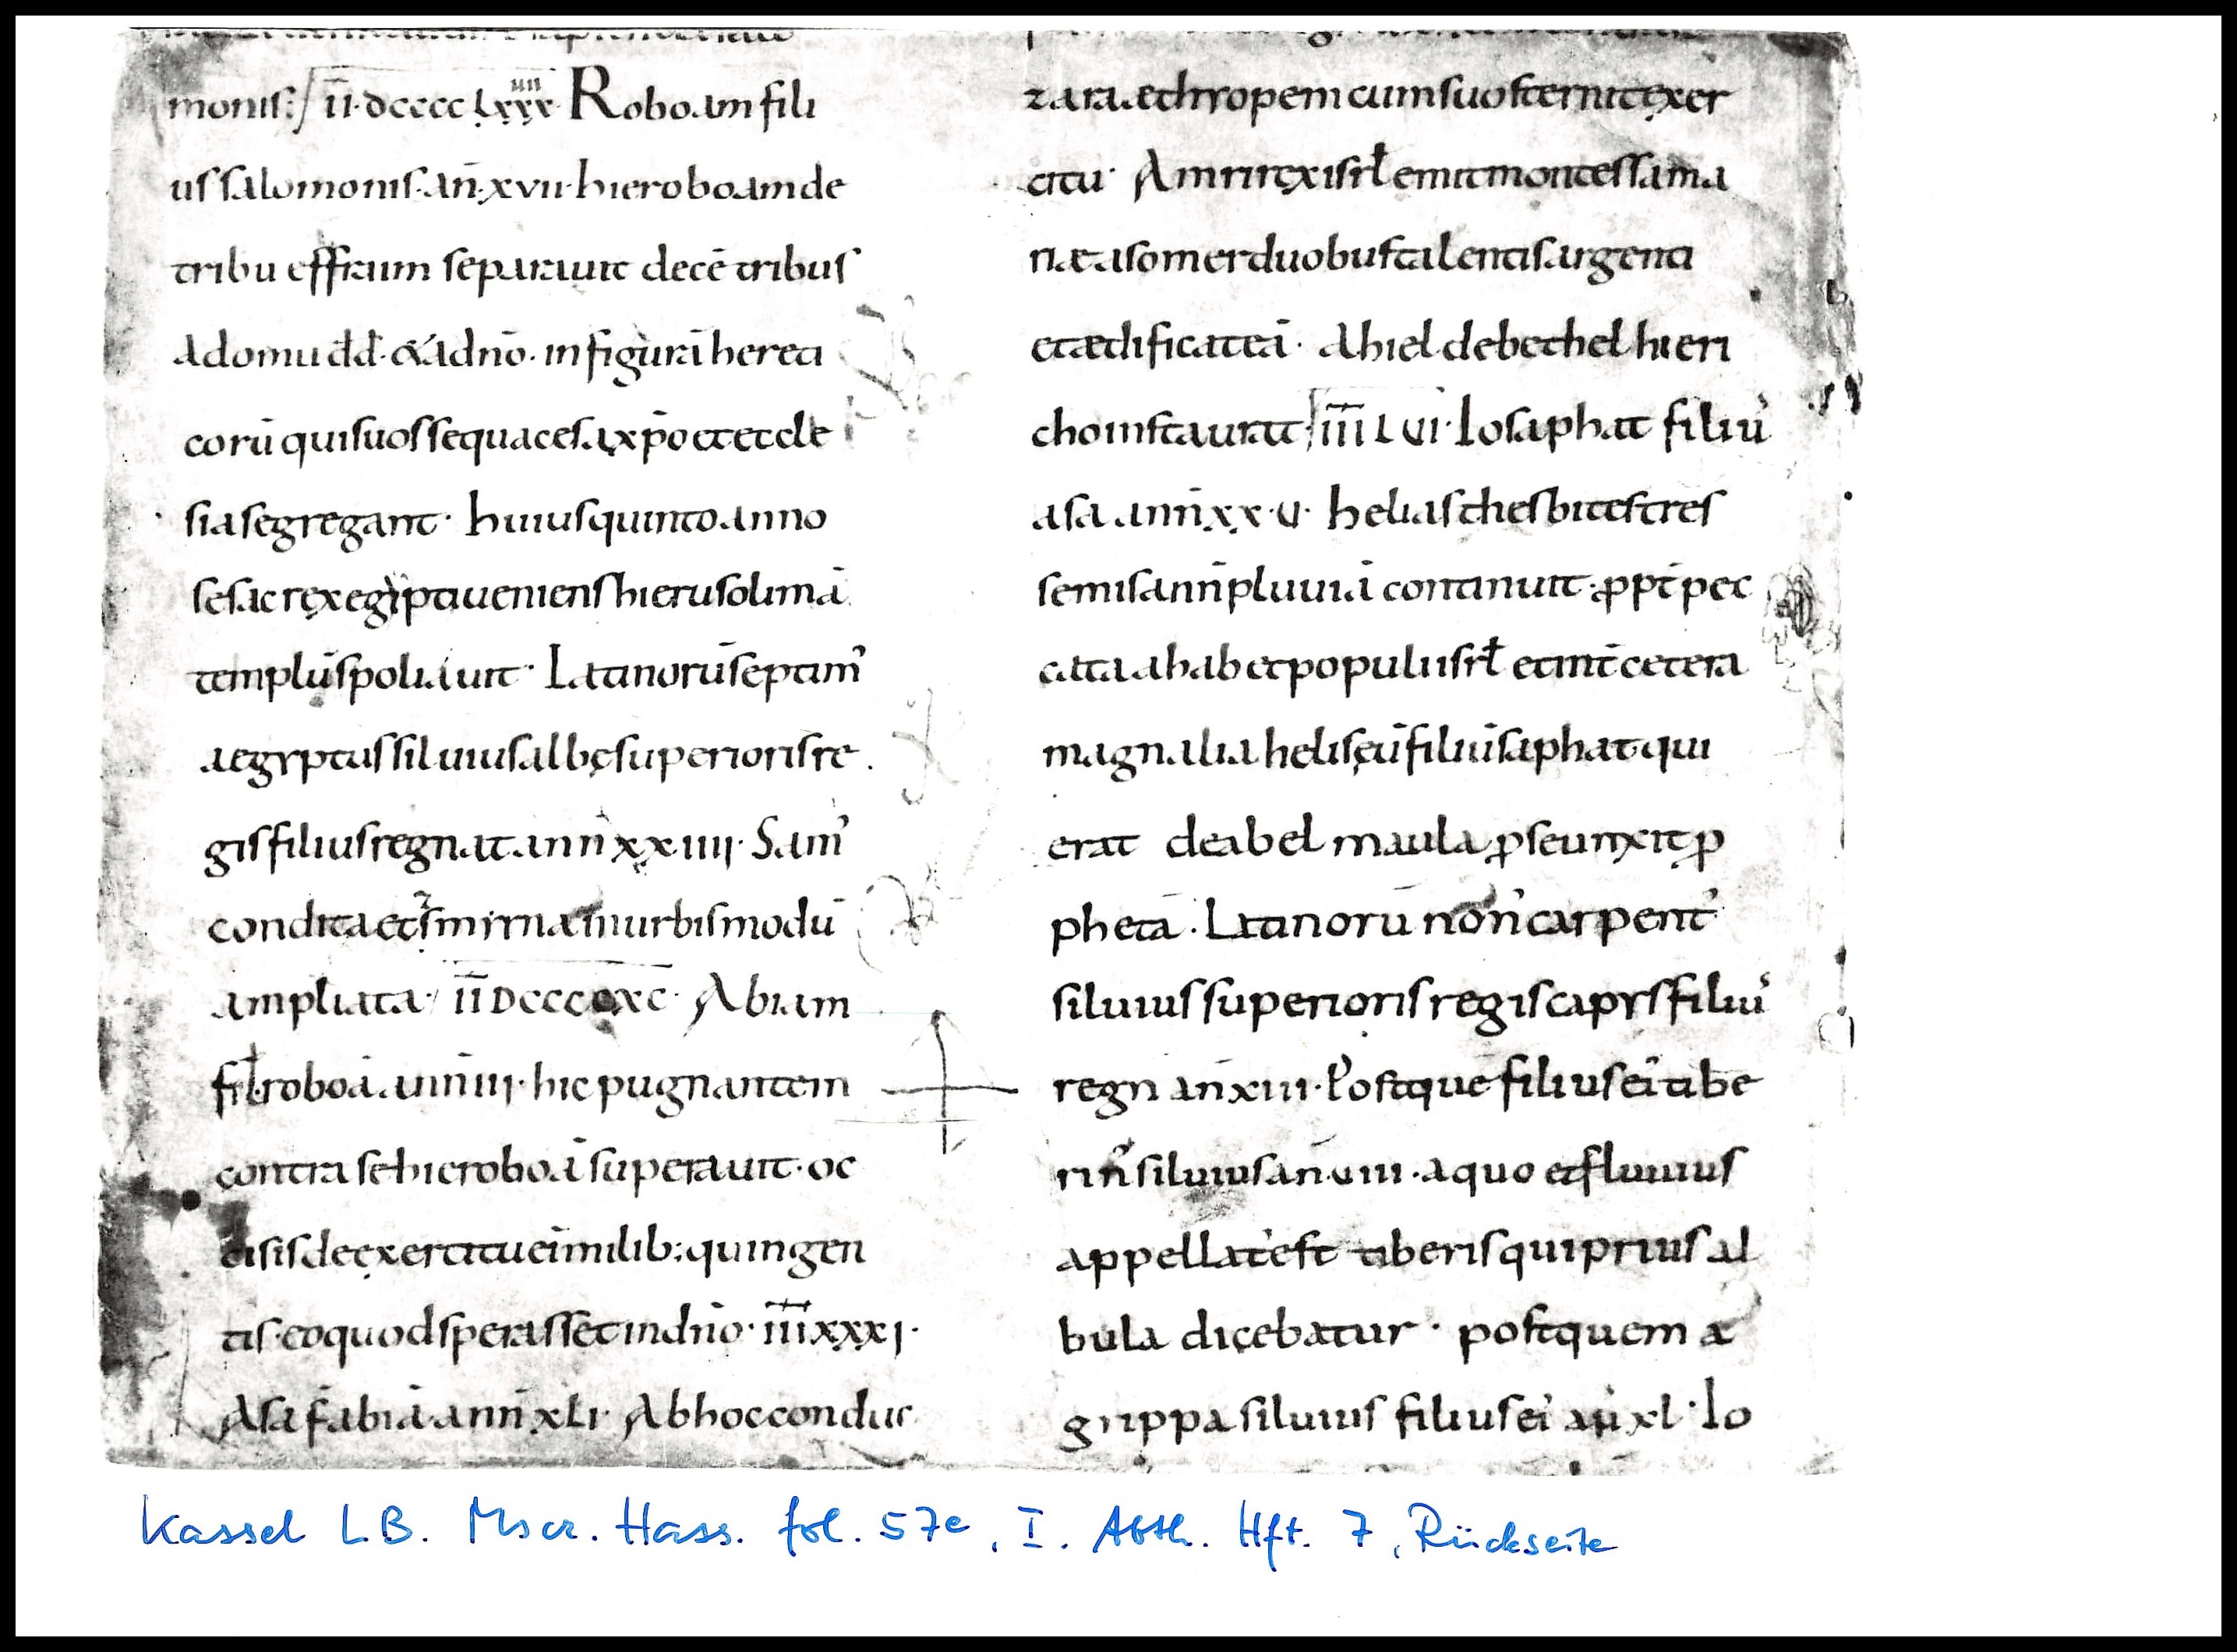 monis: īī·dcccc lxxx IIII Roboam fili
us salomonis·an̄·xvii·hieroboam de
tribu effraim separauit decē tribus
a domu dd̄·& a dn̄o·in figurā hereti
corū qui suos sequaces a xp̄o et ecle
sia segregant· huius quinto anno
sesac rex egipti ueniens hierusolimā
templū spoliauit· Latinorū septim᾽
aegyptus siluius albę superioris re
gis filius regnat ann̄ xxiiii· Sam᾽
condita et smirna in urbis modū
ampliata· īīDccccxc· Abiam
fil roboā·ann̄ iii· hic pugnantem
contra se hieroboā superauit·oc
cisis de exercitu ei᾽ milib; quingen
tis·eo quod sperasset in dn̄o·īīīxxxi·
Asa f̄ abiā·ann̄ xli· Ab hoc conditur
zara aethyopem cum suo sternit exer
citu· Amri rex isrł emit montē samа
riae a somer duobus talentis argenti
et aedificat eā· Ahiel de bethel hieri
cho instaurat īīī LVI· Iosaphat filiu᾽
asa ann̄ xx·v· helias thesbites tres
semis ann̄ pluuiā continuit·ꝓpt̄ pec
cata ahab et populi isrł et int̄ cetera
magnalia heliseū filiū saphat·qui
erat de abel maula ꝓ se unxit ꝓ
phetā· Latinorū non᾽ carpent᾽
siluius superioris regis capys filiu᾽
regn̄ an̄ xiii· Post que filius ei᾽ tibe
rin᾽ siluius an̄·viii·a quo et fluuius
appellat᾽ est tiberis qui prius al
bula dicebatur· post quem a
grippa siluius filius ei᾽ an̄ xl·Io
Kassel LB. Mscr. Hass. fol. 57e, I. Abth. Hft. 7, Rückseite